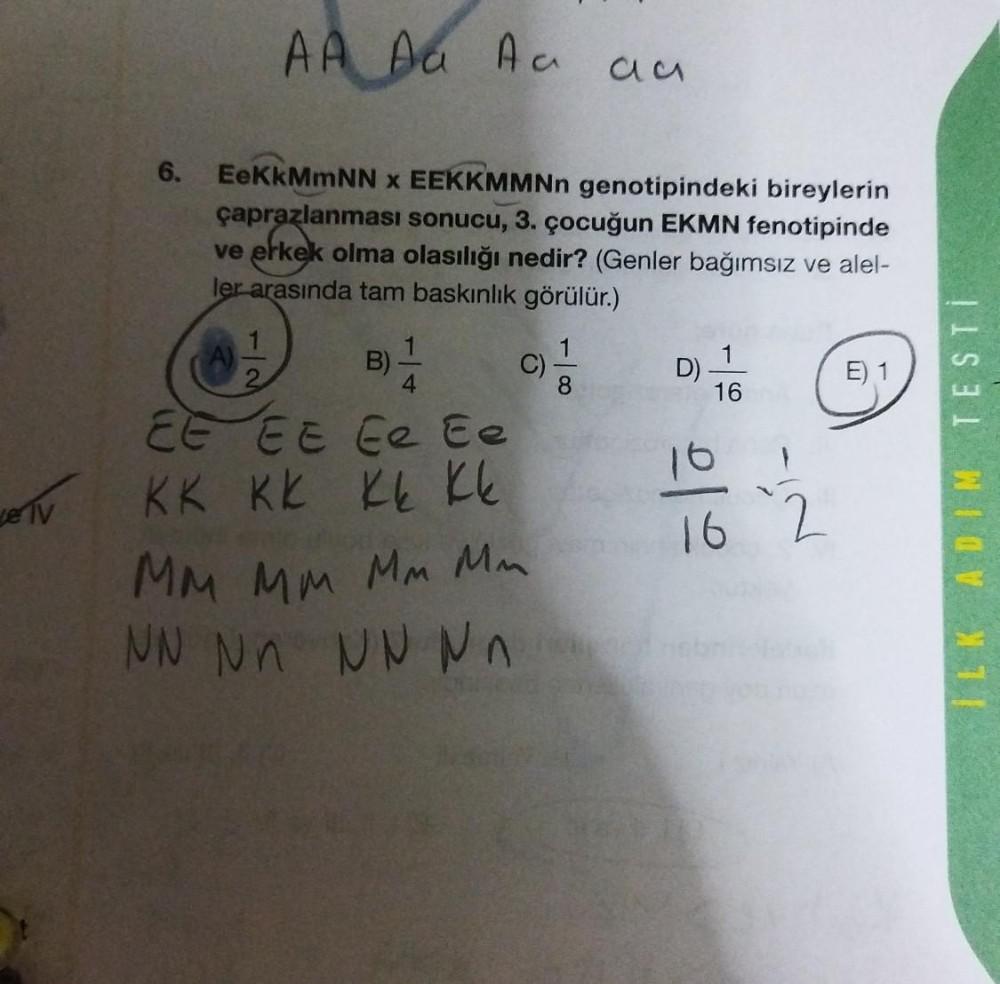 AA Aa Aa aa
6. EeKkMmNN x EEKKMMNn genotipindeki bireylerin
çaprazlanması sonucu, 3. çocuğun EKMN fenotipinde
ve erkek olma olasılığı nedir? (Genler bağımsız ve alel-
ler arasında tam baskınlık görülür.)
A) 1/2 B) 1/4 C) 1/8 D) 1/16 E) 1
EE EE Ee Ee
KK KK Kk Kk
ve IV
MM MM Mm Mm
NN Nn NN Nn
16/16 · 1/2
İLK ADIM TESTİ